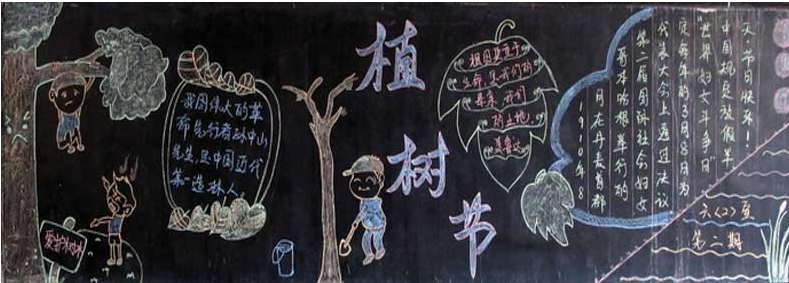 爱护树林
我国伟大的革
命先行者孙中山
先生,是中国近代
第一造林人。
植
树
节
祖国更重于
生命,是我们的
母亲,我们
的土地。
聂鲁达
1910年8
月在丹麦首都
哥本哈根举行的
第二届国际社会妇女
代表大会上通过决议
定每年的3月8日为
“世界妇女斗争日”
中国规定放假半
天,节日快乐!
六(2)班
第二期